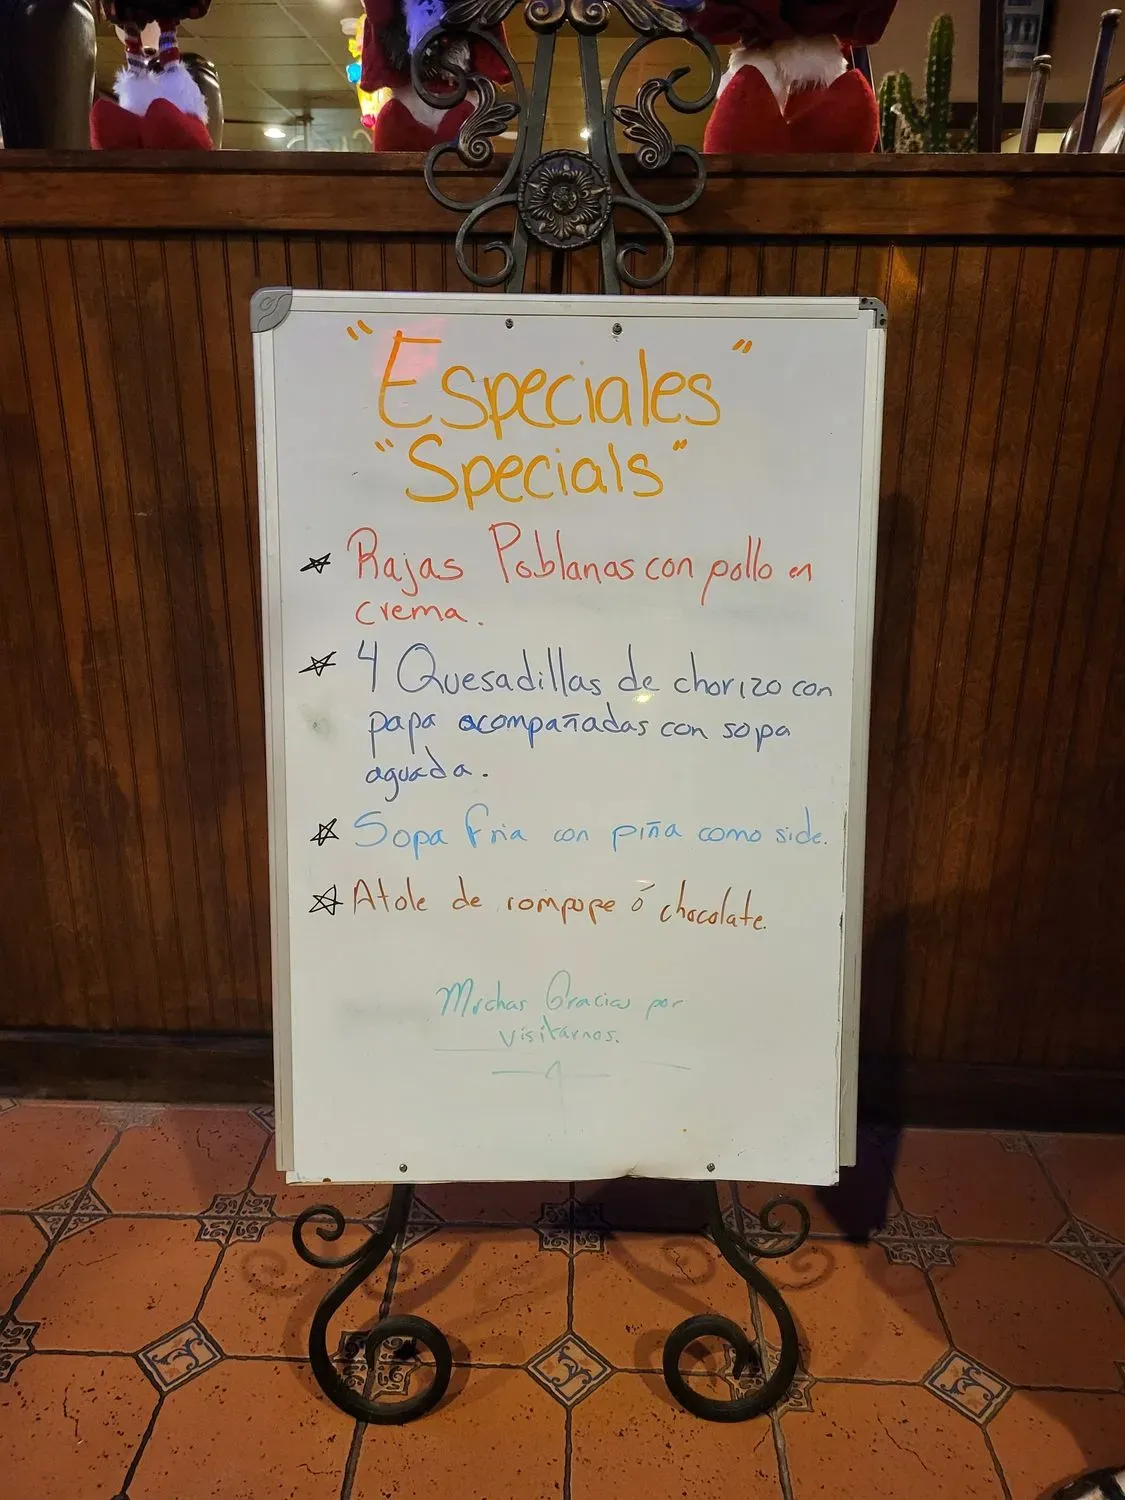 "Especiales"
"Specials"
Rajas Poblanas con pollo en
crema.
4 Quesadillas de chorizo con
papa acompañadas con sopa
aguada.
Sopa fria con piña como side.
Atole de rompope ó chocolate.
Muchas Gracias por
visitarnos.